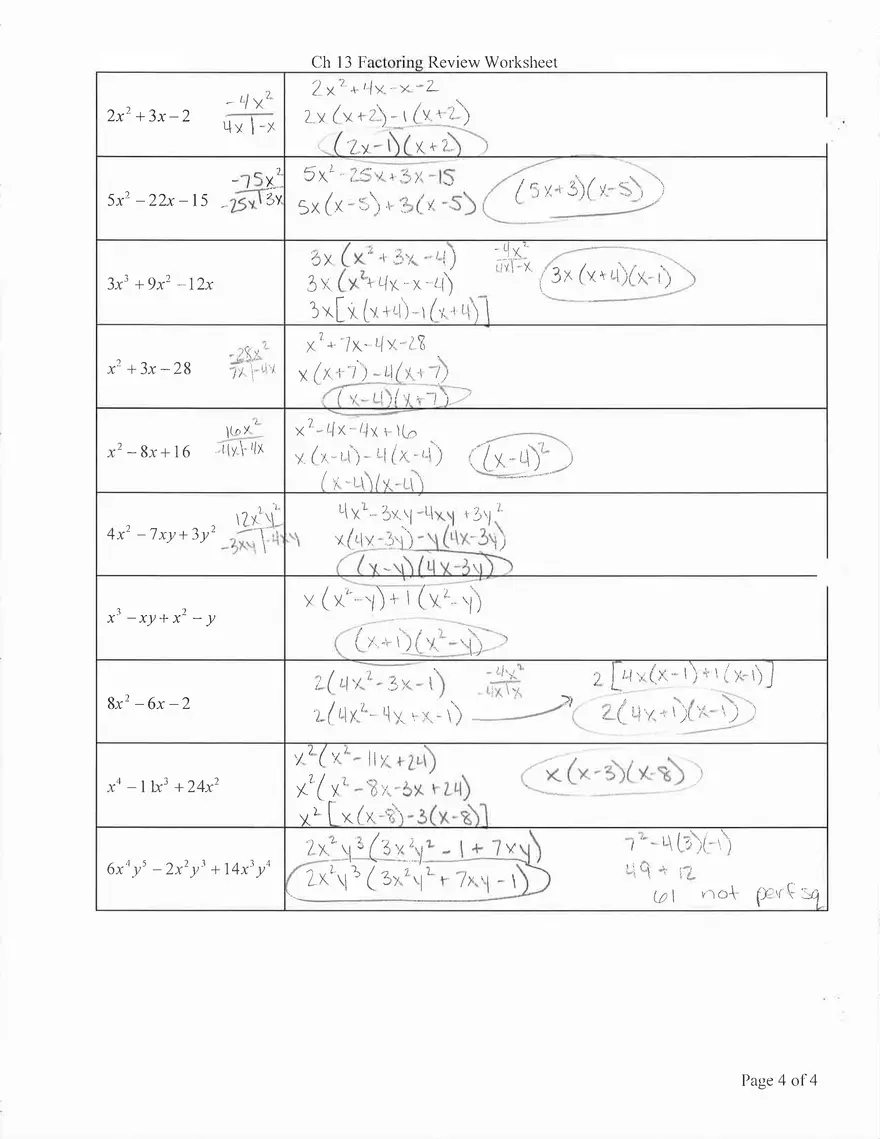 Ch 13 Factoring Review Worksheet
2x² + 3x − 2
-4x²
4x | -x
2x² + 4x - x - 2
2x (x+2) - 1 (x+2)
(2x-1)(x+2)
5x² − 22x − 15
-75x²
-25x | 3x
5x² - 25x + 3x - 15
5x (x-5) + 3(x-5)
(5x+3)(x-5)
3x³ + 9x² − 12x
3x (x² + 3x - 4)
-4x²
4x | -x
3x (x² + 4x - x - 4)
3x [x (x+4) - 1 (x+4)]
3x (x+4)(x-1)
x² + 3x − 28
-28x²
7x | -4x
x² + 7x - 4x - 28
x (x+7) - 4(x+7)
(x-4)(x+7)
x² − 8x + 16
16x²
-4x | -4x
x² - 4x - 4x + 16
x (x-4) - 4 (x-4)
(x-4)(x-4)
(x-4)²
4x² − 7xy + 3y²
12x²y²
-3xy | -4xy
4x² - 3xy - 4xy + 3y²
x(4x-3y) - y(4x-3y)
(x-y)(4x-3y)
x³ − xy + x² − y
x (x²-y) + 1 (x²-y)
(x+1)(x²-y)
8x² − 6x − 2
2(4x² - 3x - 1)
-4x²
-4x | x
2(4x² - 4x + x - 1)
2 [4x(x-1) + 1 (x-1)]
2(4x+1)(x-1)
x⁴ − 11x³ + 24x²
x² (x² - 11x + 24)
x² (x² - 8x - 3x + 24)
x² [x (x-8) - 3(x-8)]
x (x-3)(x-8)
6x⁴y⁵ − 2x²y³ + 14x³y⁴
2x²y³ (3x²y² - 1 + 7xy)
2x²y³ (3x²y² + 7xy - 1)
7² - 4(3)(-1)
49 + 12
61 not perf sq
Page 4 of 4